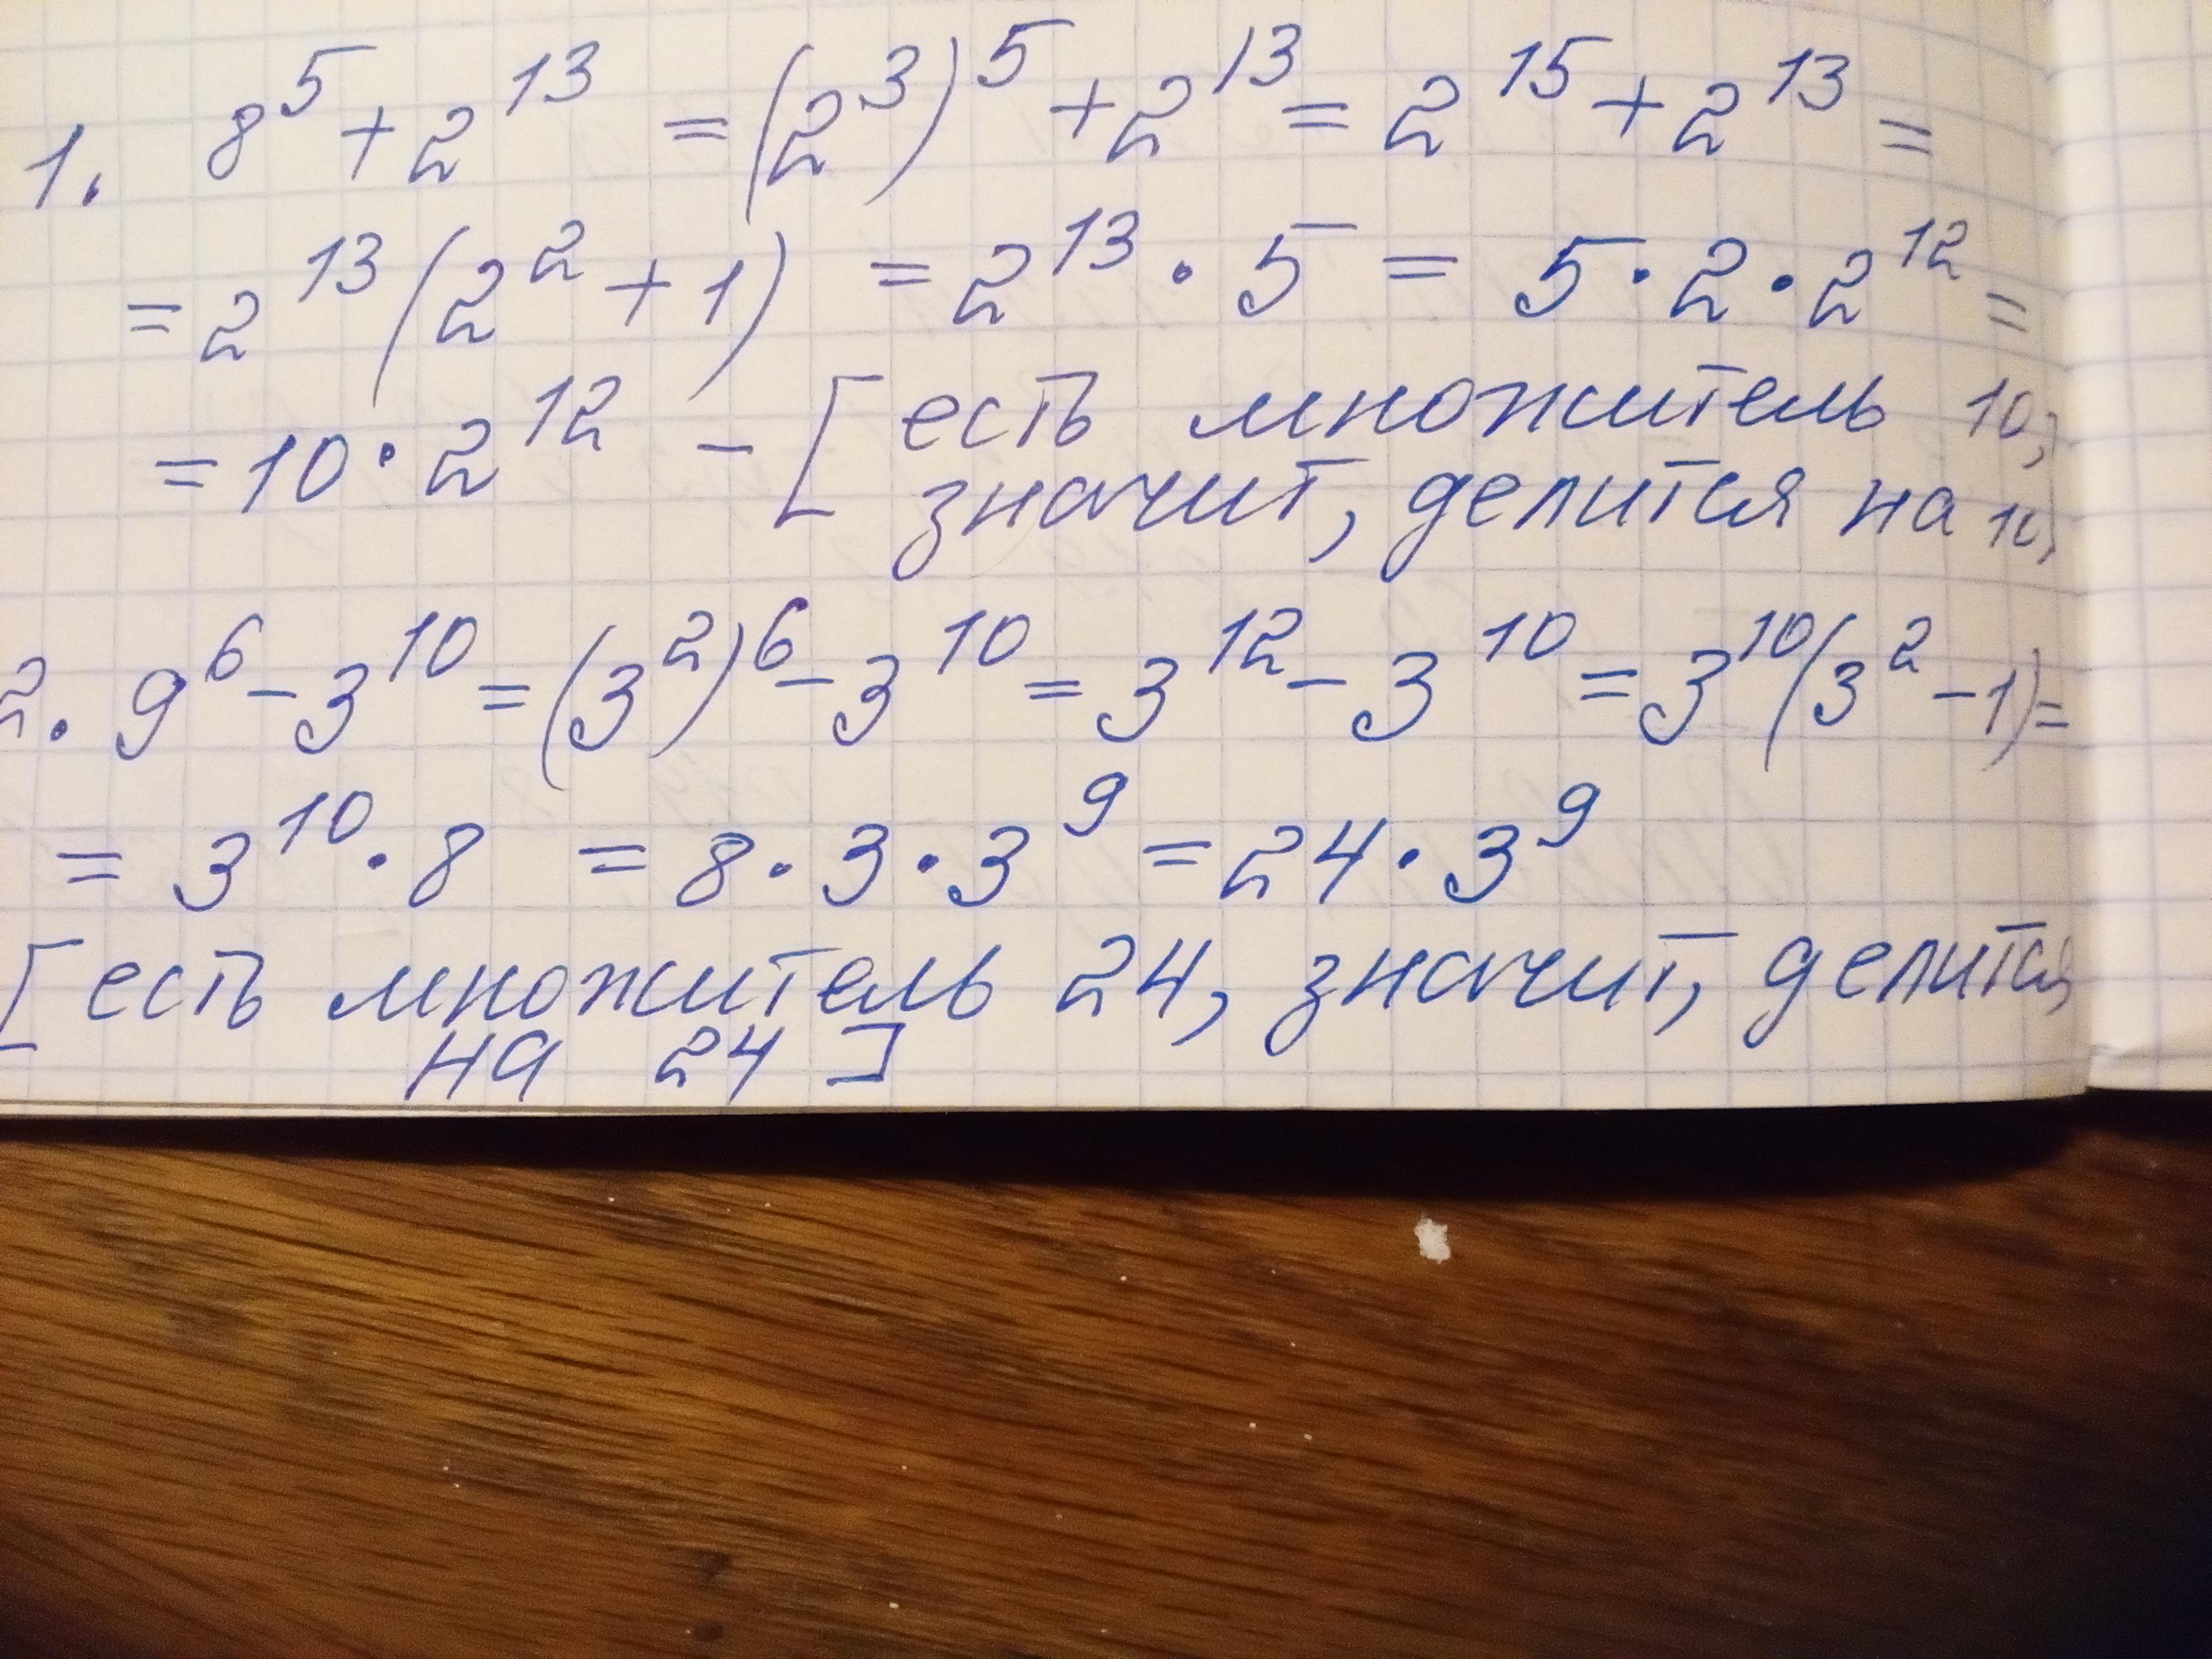 1. 8⁵ + 2¹³ = (2³)⁵ + 2¹³ = 2¹⁵ + 2¹³ =
= 2¹³(2² + 1) = 2¹³ · 5 = 5 · 2 · 2¹² =
= 10 · 2¹² – [ есть множитель 10,
значит, делится на
2. 9⁶ – 3¹⁰ = (3²)⁶ – 3¹⁰ = 3¹² – 3¹⁰ = 3¹⁰(3² – 1) =
= 3¹⁰ · 8 = 8 · 3 · 3⁹ = 24 · 3⁹
[ есть множитель 24, значит, делится
на 24 ]